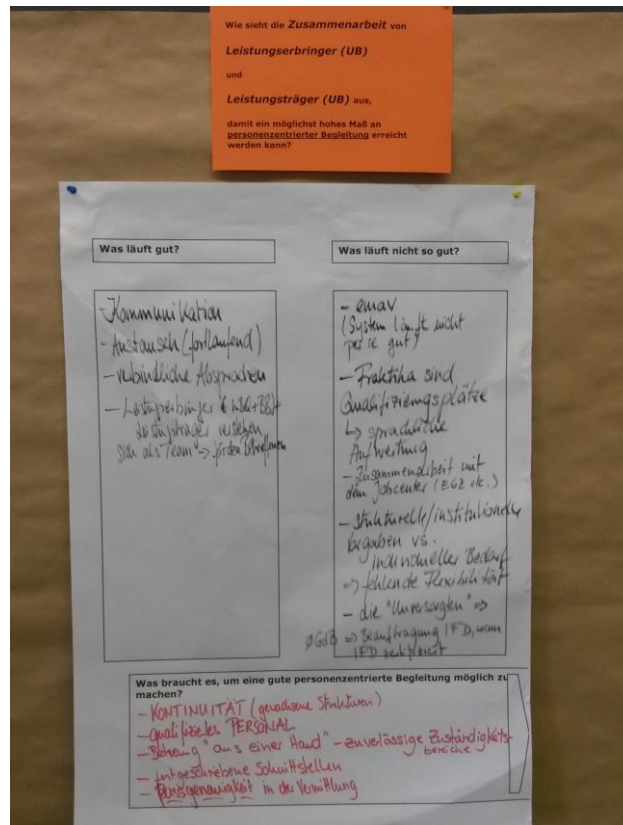 Wie sieht die Zusammenarbeit von
Leistungserbringer (UB)
und
Leistungsträger (UB) aus,
damit ein möglichst hohes Maß an
personenzentrierter Begleitung erreicht
werden kann?
Was läuft gut?
- Kommunikation
- Austausch (fortlaufend)
- verbindliche Absprachen
- Leistungserbringer
Leistungsträger verstehen
sich als Team ->
Was läuft nicht so gut?
- emav
(System läuft nicht
per se gut)
- Praktika sind
Qualifizierungsplätze
↳ sprachliche
Aufwertung
- Zusammenarbeit mit
dem Jobcenter (EGZ etc.)
- Strukturelle/institutionelle
Vorgaben vs.
individueller Bedarf
=> fehlende Flexibilität
- die "Unversorgten" =>
ØGdB => Beauftragung IFD, wenn
IFD
Was braucht es, um eine gute personenzentrierte Begleitung möglich zu
machen?
- KONTINUITÄT (gewachsene Strukturen)
- qualifiziertes PERSONAL
- "aus einer Hand" - zuverlässige Zuständigkeits-
bereiche
- festgeschriebene Schnittstellen
- Passgenauigkeit in der Vermittlung